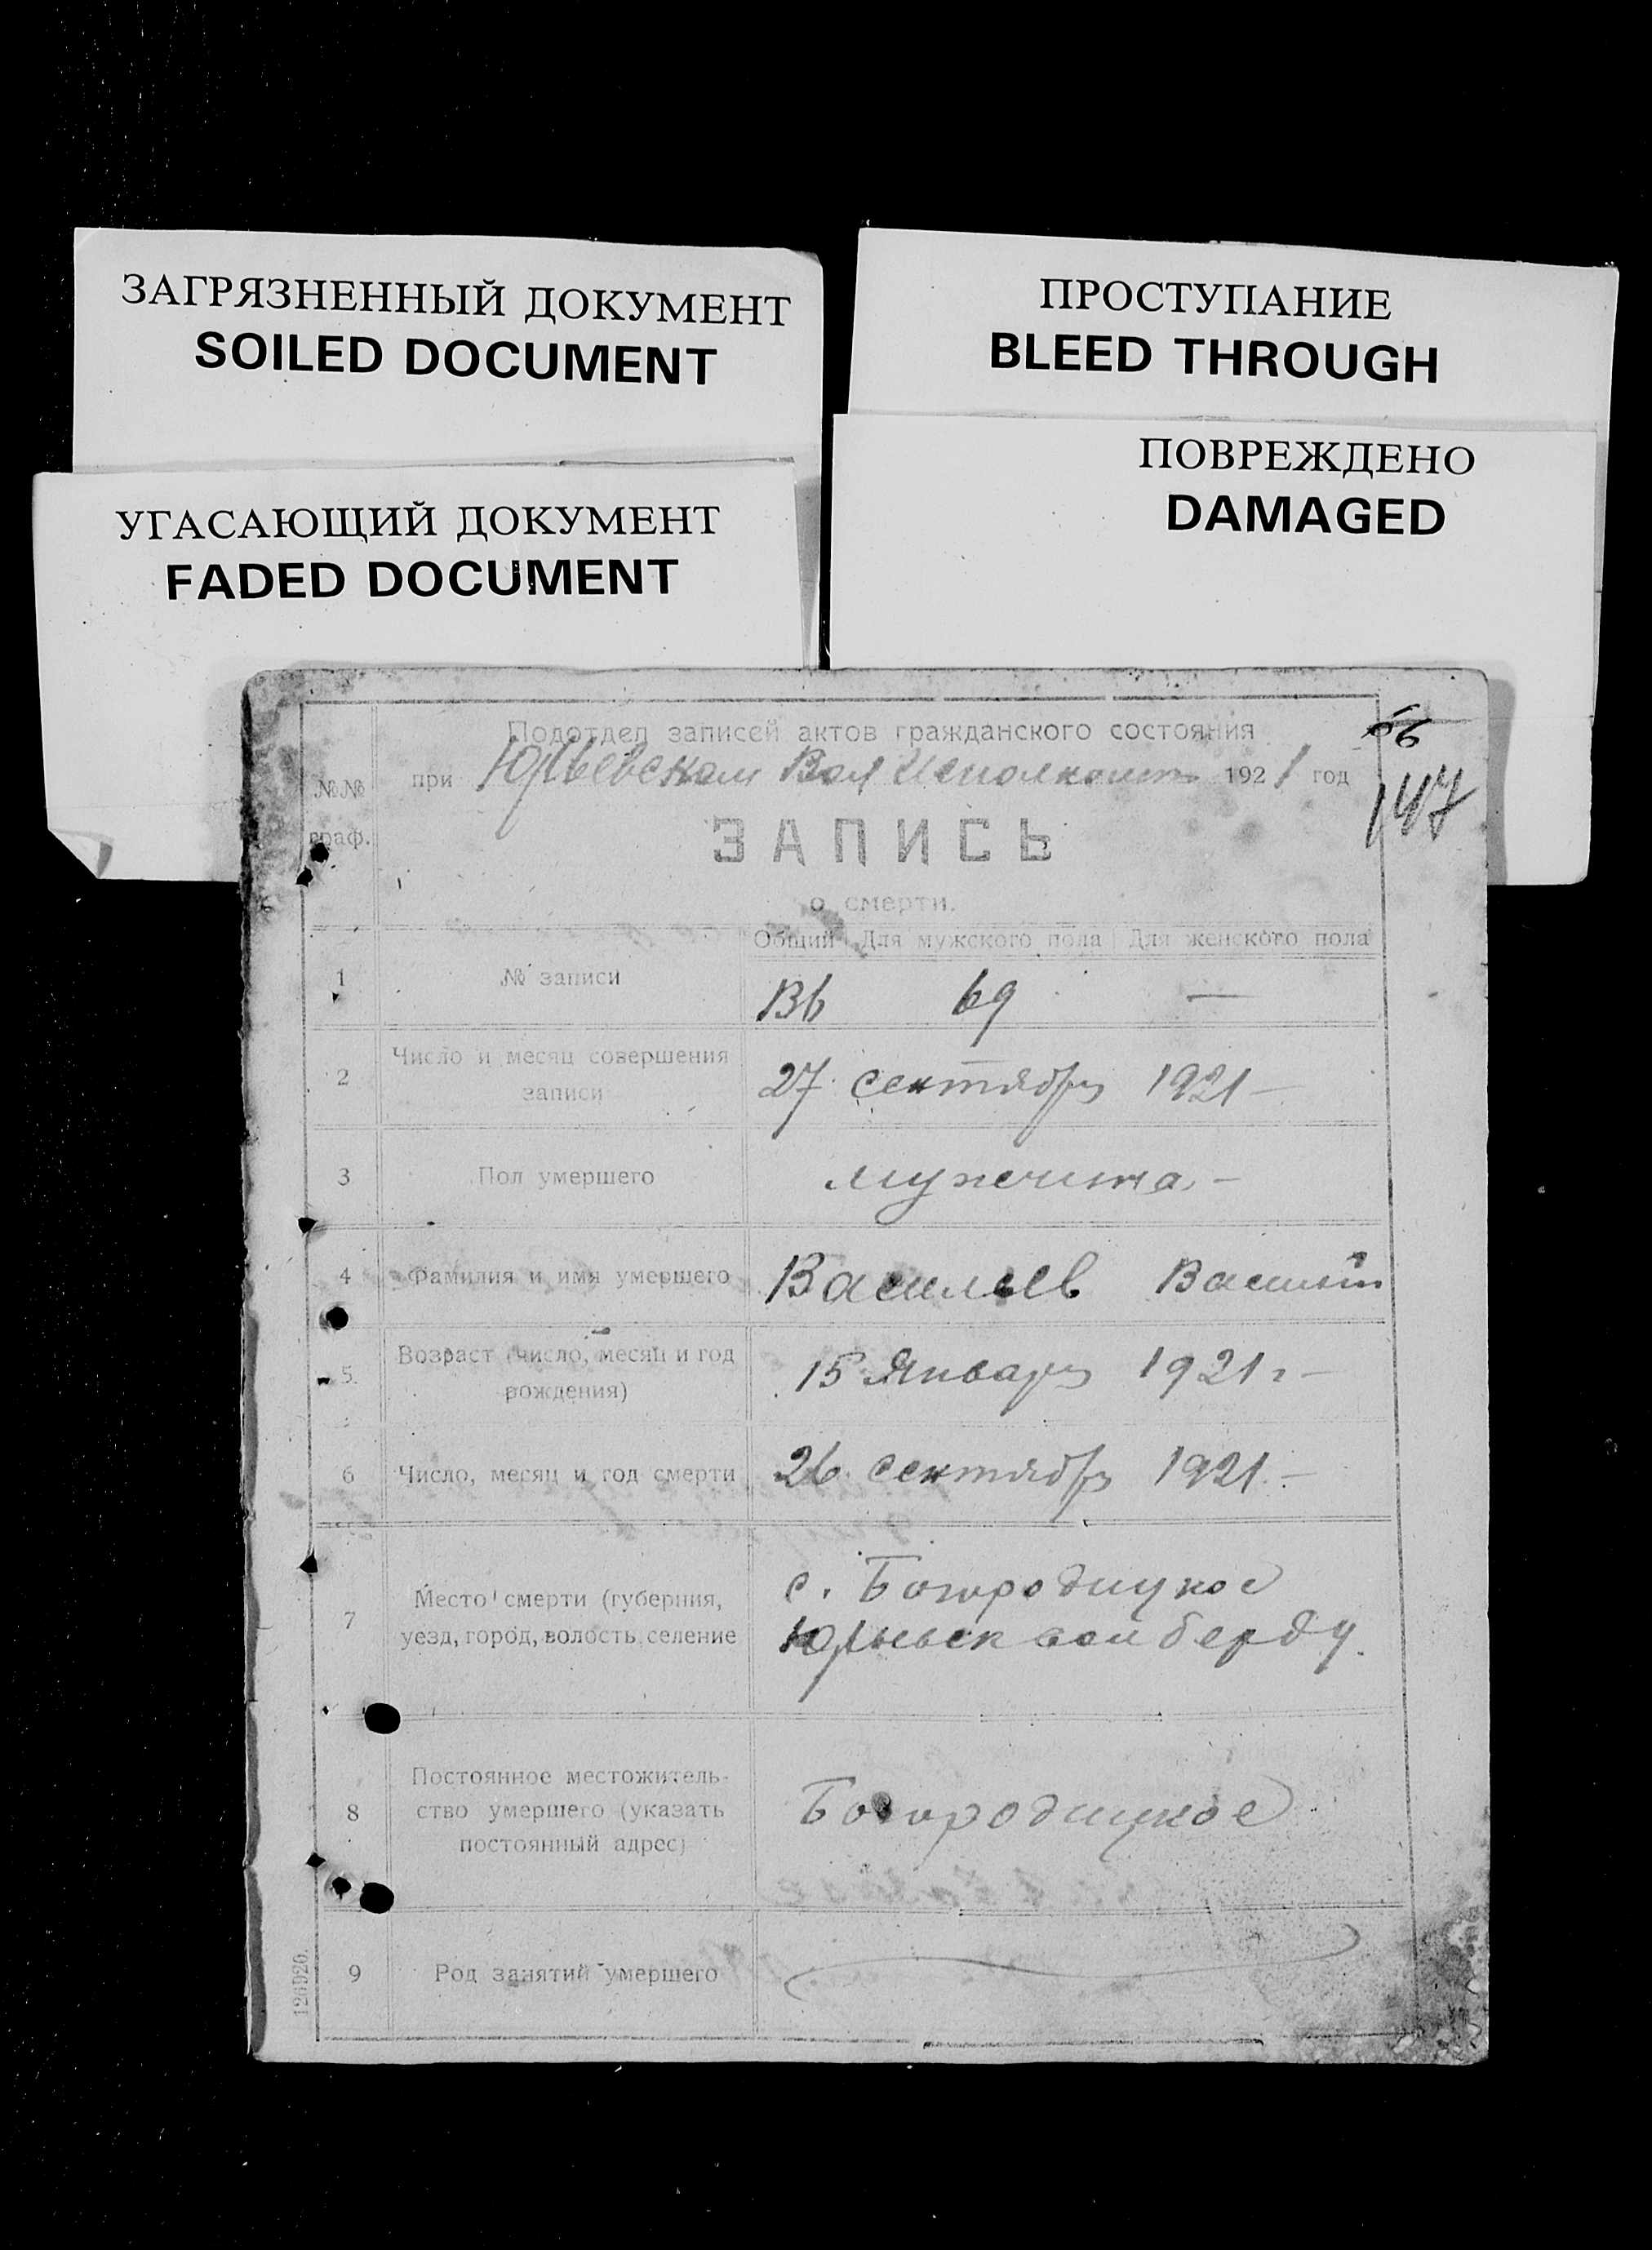 ЗАГРЯЗНЕННЫЙ ДОКУМЕНТ
SOILED DOCUMENT
ПРОСТУПАНИЕ
BLEED THROUGH
УГАСАЮЩИЙ ДОКУМЕНТ
FADED DOCUMENT
ПОВРЕЖДЕНО
DAMAGED
Подотдел записей актов гражданского состояния
при Юрьевском Вол Исполкоме 1921 год
147
№№ граф.
ЗАПИСЬ
о смерти.
Общий Для мужского пола Для женского пола
1 № записи 136 69 —
2 Число и месяц совершения
записи 27 сентября 1921 —
3 Пол умершего мужчина —
4 Фамилия и имя умершего Васильев Василий
5 Возраст (число, месяц и год
рождения) 15 Января 1921 г —
6 Число, месяц и год смерти 26 сентября 1921 —
7 Место смерти (губерния,
уезд, город, волость, селение
с. Богородицкое
Юрьевск вол берду.
8 Постоянное местожитель-
ство умершего (указать
постоянный адрес)
Богородицкое
9 Род занятий умершего